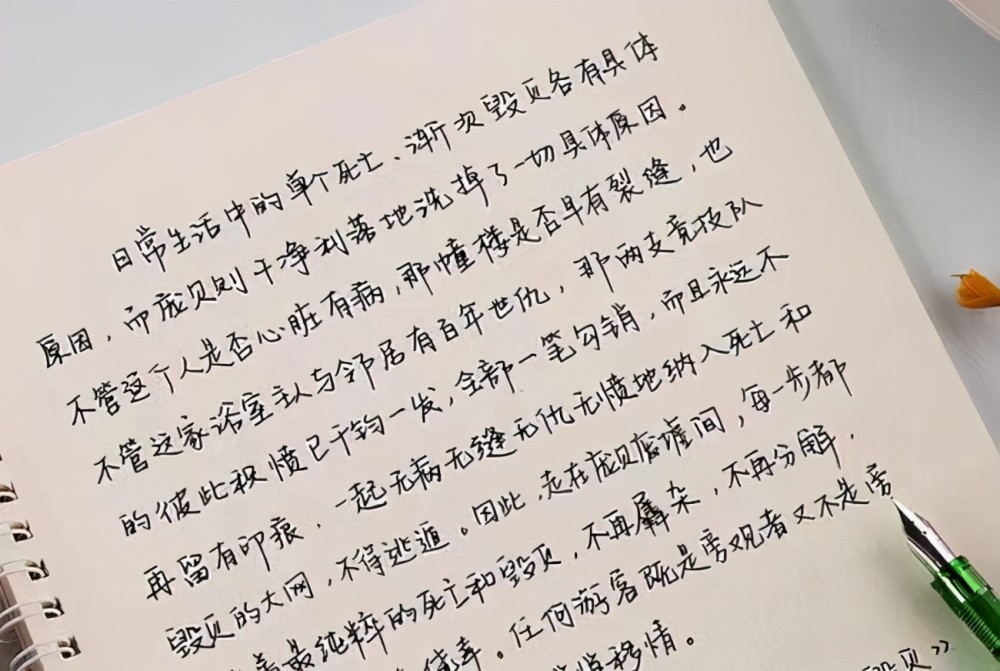 日常生活中的单个死亡、渐次毁灭各有具体
原因，而庞贝则干净利落地洗掉了一切具体原因。
不管这个人是否心脏有病，那幢楼是否早有裂缝，也
不管这家浴室主人与邻居有百年世仇，那两支竞技队
的彼此积愤已千钧一发，全部一笔勾销，而且永远不
再留有印痕，一起无病无缝无仇无愤地纳入死亡和
毁灭的大网，不得逃遁。因此，走在庞贝废墟间，每一步都
着最纯粹的死亡和毁灭，不再羼杂，不再分解，
侥幸。任何游客既是旁观者又不是旁
移情。